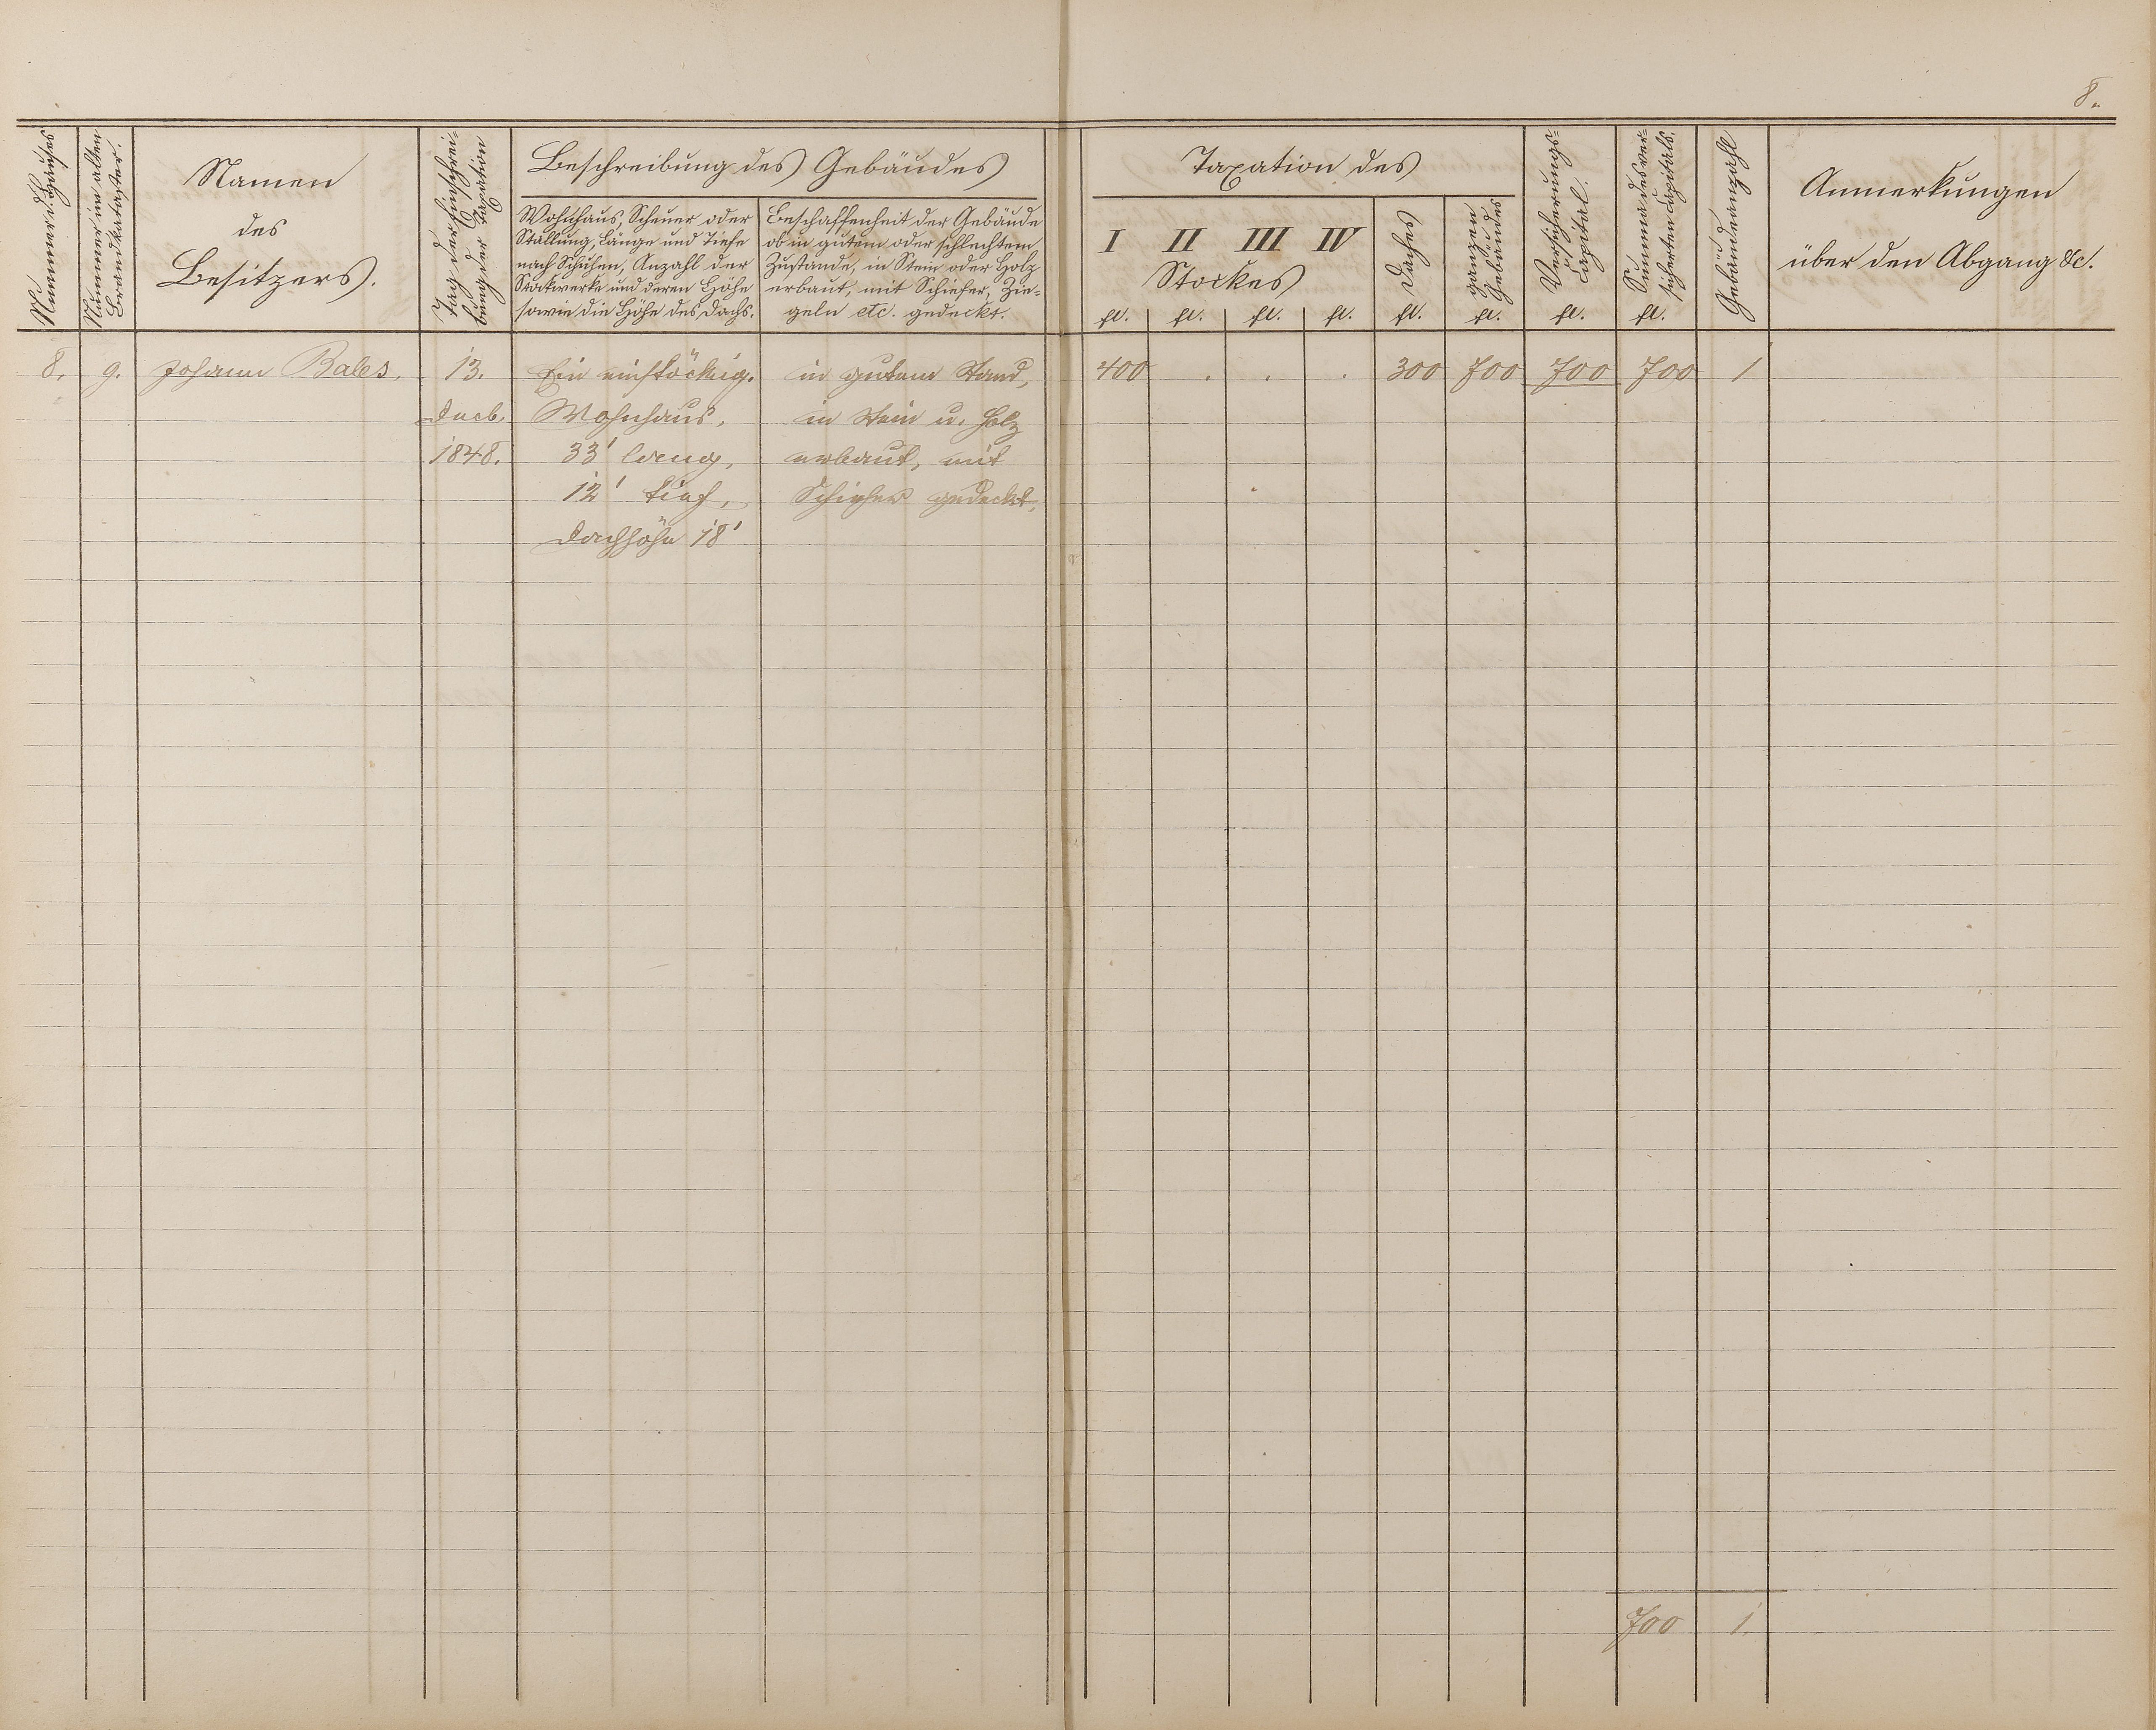 8.
Nummer d. Hauses
Nummer im alten
Brandkataster.
Namen
des
Besitzers.
Tag der Einschrei-
bung der Taxation
Beschreibung des Gebäudes
Wohnhaus, Scheuer oder
Stallung, Länge und Tiefe
nach Schuhen, Anzahl der
Stockwerke und deren Höhe
sowie die Höhe des Dachs.
Beschaffenheit der Gebäude
ob in gutem oder schlechtem
Zustande, in Stein oder Holz
erbaut, mit Schiefer, Zie-
geln etc. gedeckt.
Taxation des
I II III IV
Stockes
Daches
ganzen
Gebäudes
Versicherungs-
Capital.
Summa des ver-
sicherten Capitals.
Gebäudeanzahl
Anmerkungen
über den Abgang &c.
fl. fl. fl. fl. fl. fl. fl. fl.
8. 9. Johann Bales. 13. Ein einstöckig. in gutem Stand, 400 . . . 300 700 700 700 1
Decb. Wohnhaus, in Stein u. Holz
1848. 33' lang, erbaut, mit
12' tief, Schiefer gedeckt,
Dachhöhe 18'
700 1.